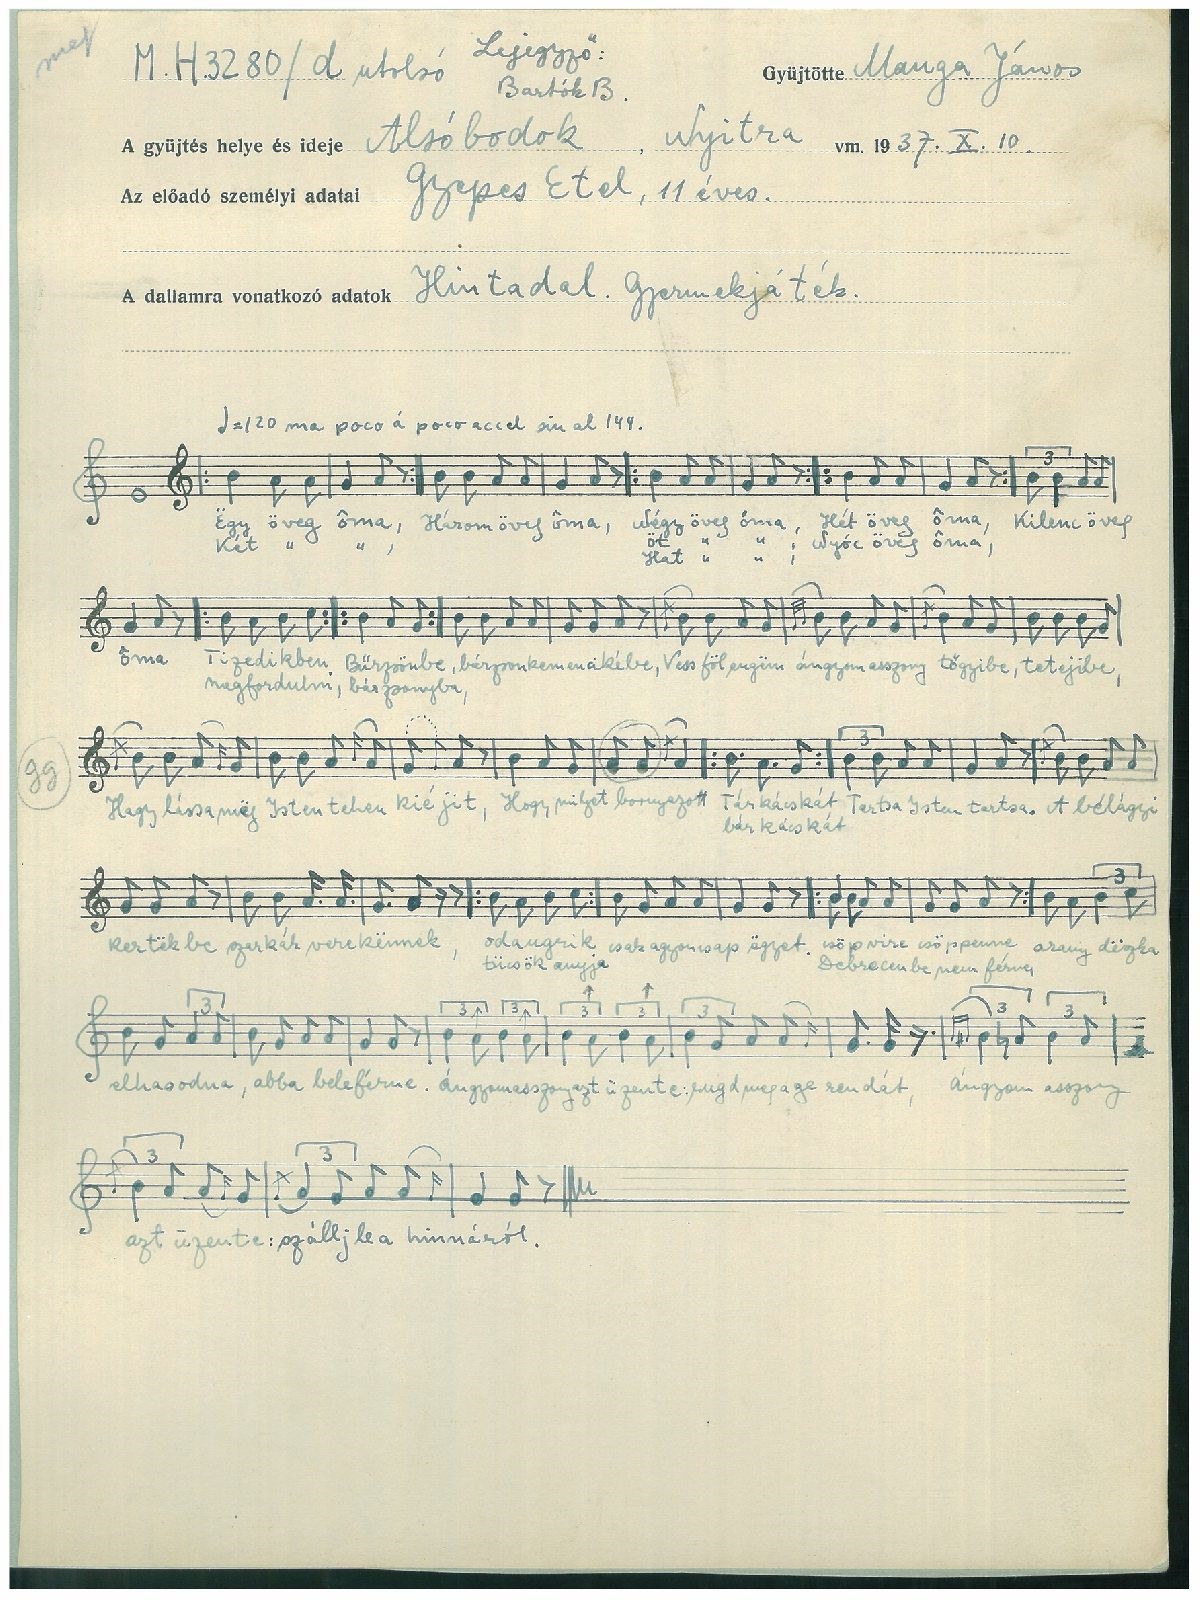 M.H.3280/d utolsó
Lejegyző:
Bartók B.
Gyüjtötte Manga János
A gyüjtés helye és ideje Alsóbodok, Nyitra vm. 1937. X. 10.
Az előadó személyi adatai Gyepes Etel, 11 éves.
A dallamra vonatkozó adatok Hintadal. Gyermekjáték.
♩=120 ma poco á poco accel sin al 144.
3
Ëgy öveg ôma, Három öveg ôma, Négy öveg ôma, Hét öveg ôma, Kilenc öveg
Két " " , öt " " , Nyóc öveg ôma,
Hat " " ,
ôma Tizedikben Bűrzönbe, bárzonkemenákébe, Vess föl engüm ángyomasszony tőgyibe, tetejibe,
megfordulni, bárzonyba,
gg
3
Hagy lássa mëg Isten tehen kiéjit, Hogy millyet bornyazott Tárkácskát Tartsa Isten tartsa. A bélágyi
bárkácskát
3
kertëkbe szarkák verekënnek, odaugrik csak agyoncsap ëgyet. csöpvire csöppenne arany dëzska
tücsök anyja Debrecenbe nem férne,
3 3 3 3 3 3 3 3
elhasodna, abba beleférne. Ángyomasszony azt üzente: engd meg a gerendát, Ángyom asszony
3 3
azt üzente: szállj le a hinnáról.